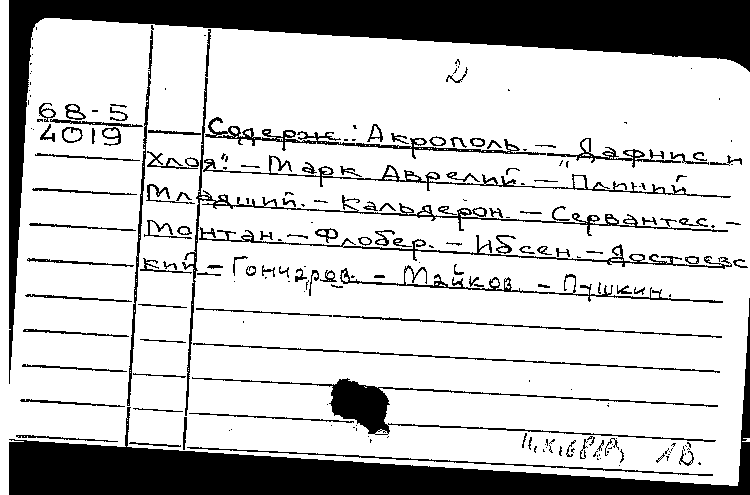 2
68-5
4019
Содерж.: Акрополь. - „Дафнис и
Хлоя". - Марк Аврелий. - Плиний
Младший. - Кальдерон. - Сервантес. -
Монтан. - Флобер. - Ибсен. - Достоевс
кий - Гончаров. - Майков. - Пушкин.
1В.